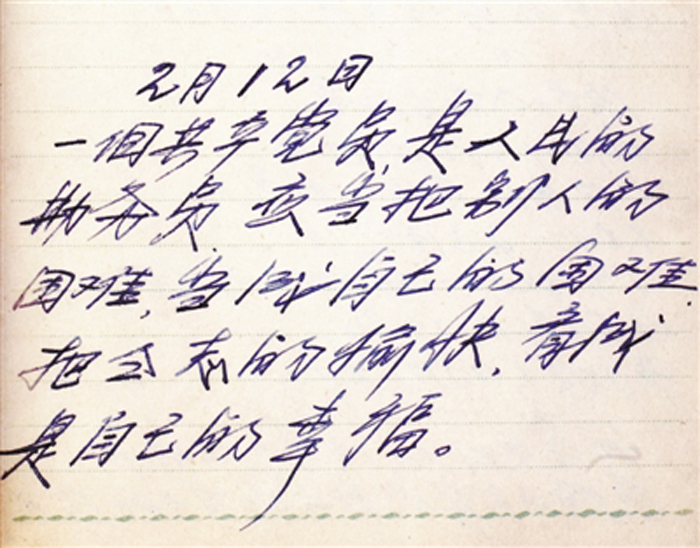 2月12日
一個共产党员是人民的
勤务员应当把别人的
困难,当成自己的困难.
把仝志的愉快,看成
是自己的幸福。